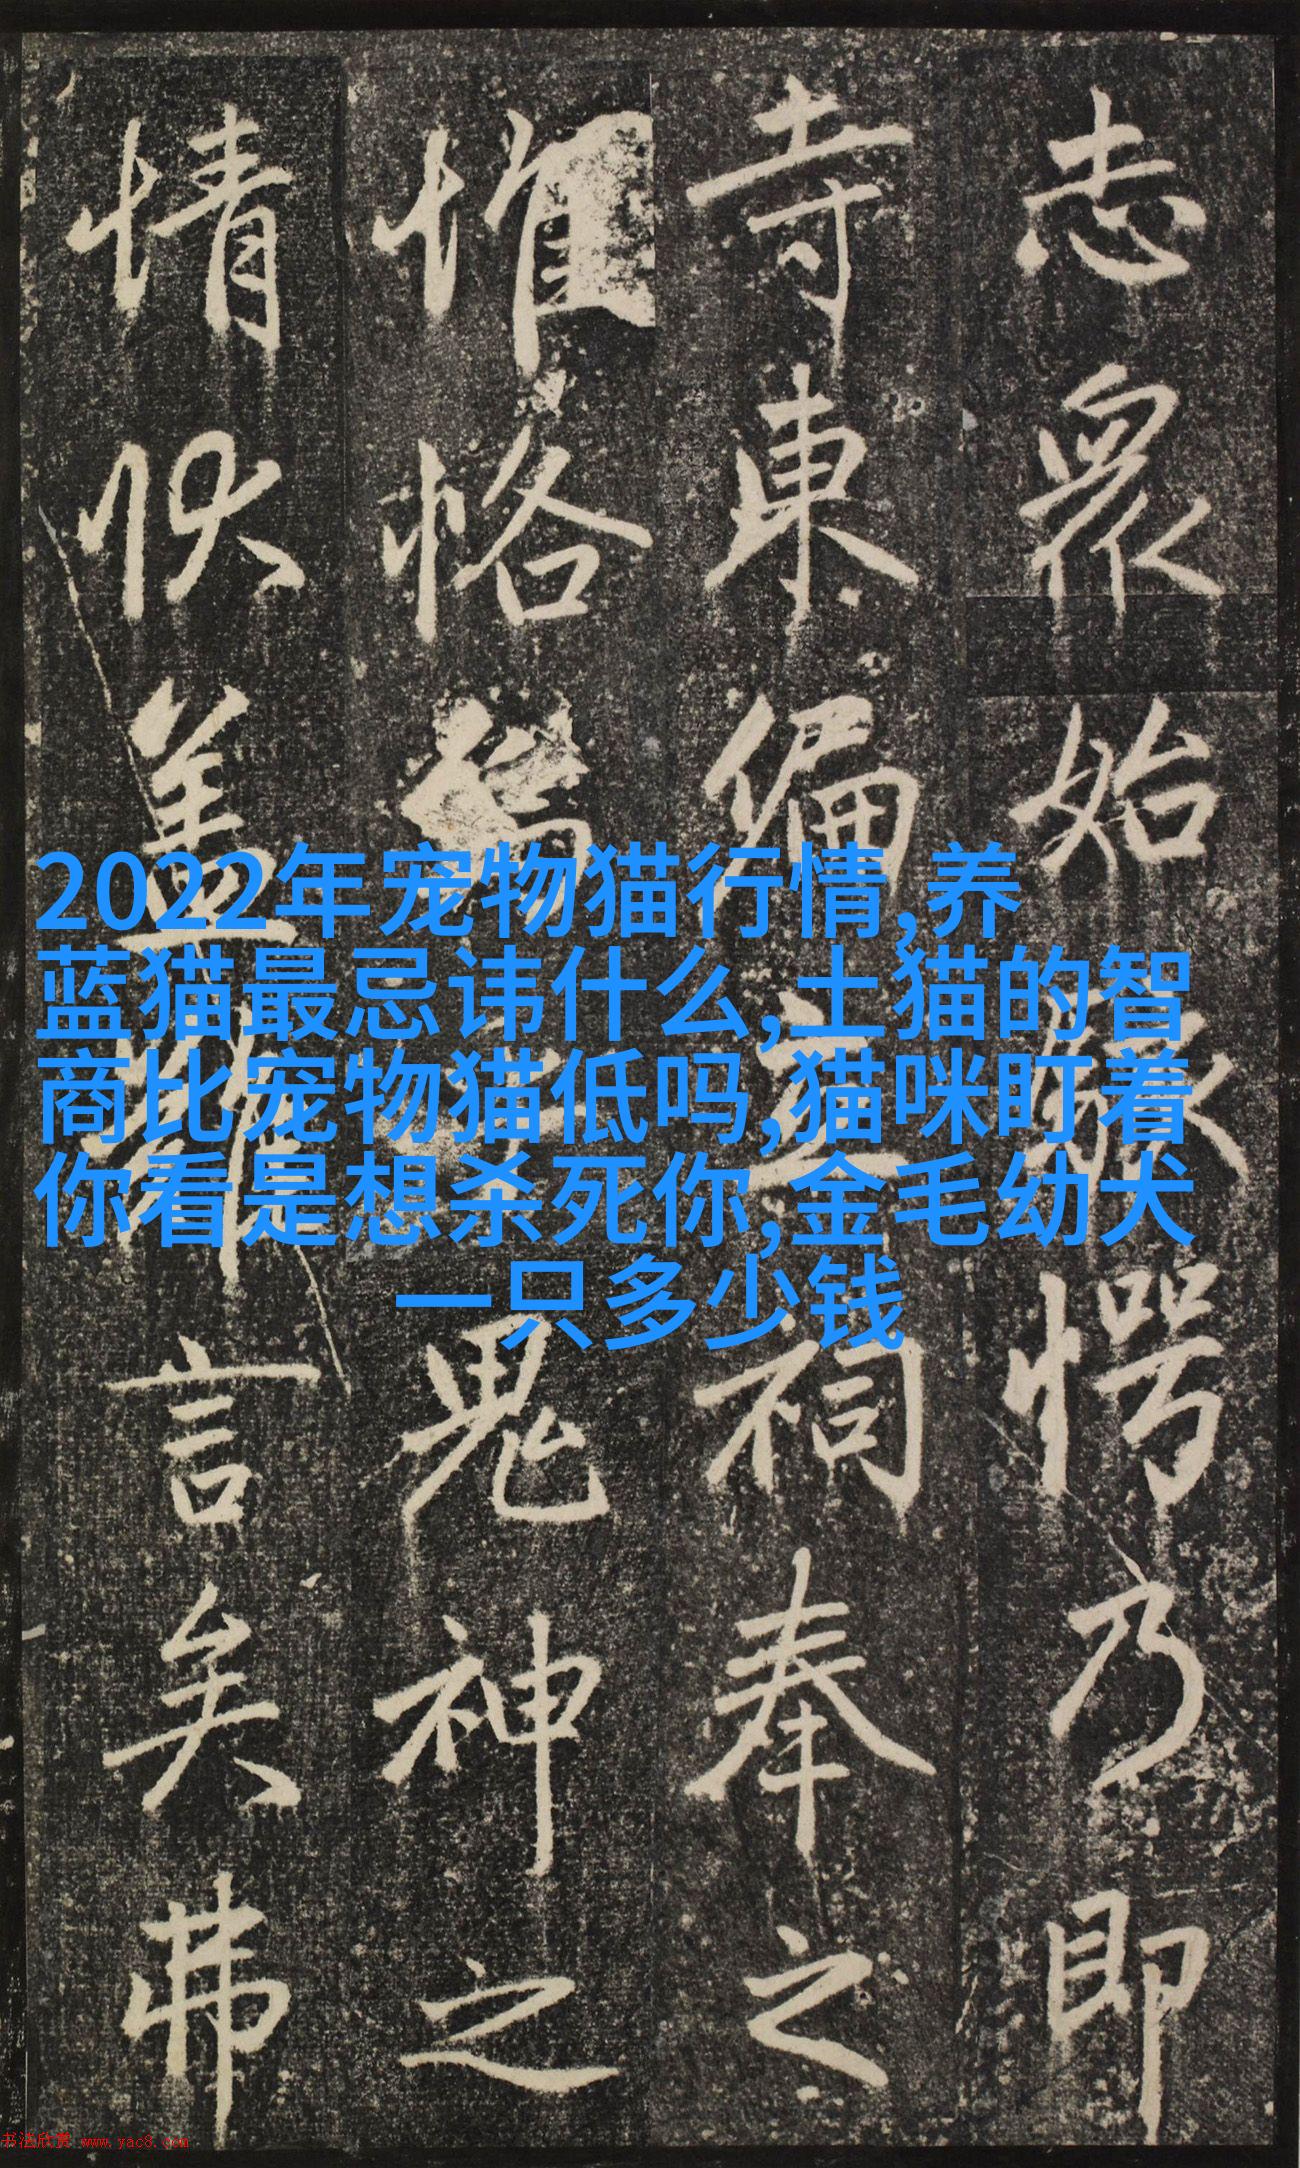 志眾始駭愕乃即
寺東偏立祠奉之
惟恪鬼神之
情狀蓋難言矣弗
2022年宠物猫行情,养
蓝猫最忌讳什么,土猫的智
商比宠物猫低吗,猫咪盯着
你看是想杀死你,金毛幼犬
一只多少钱
书法欣赏 www.yac8.com